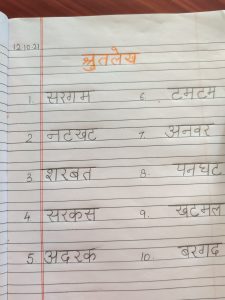 12.10.21
श्रुतलेख
1. सरगम 6. टमटम
2 नटखट 7. अनवर
3 शरबत 8. पनघट
4 सरकस 9. खटमल
5 अदरक 10. बरगद